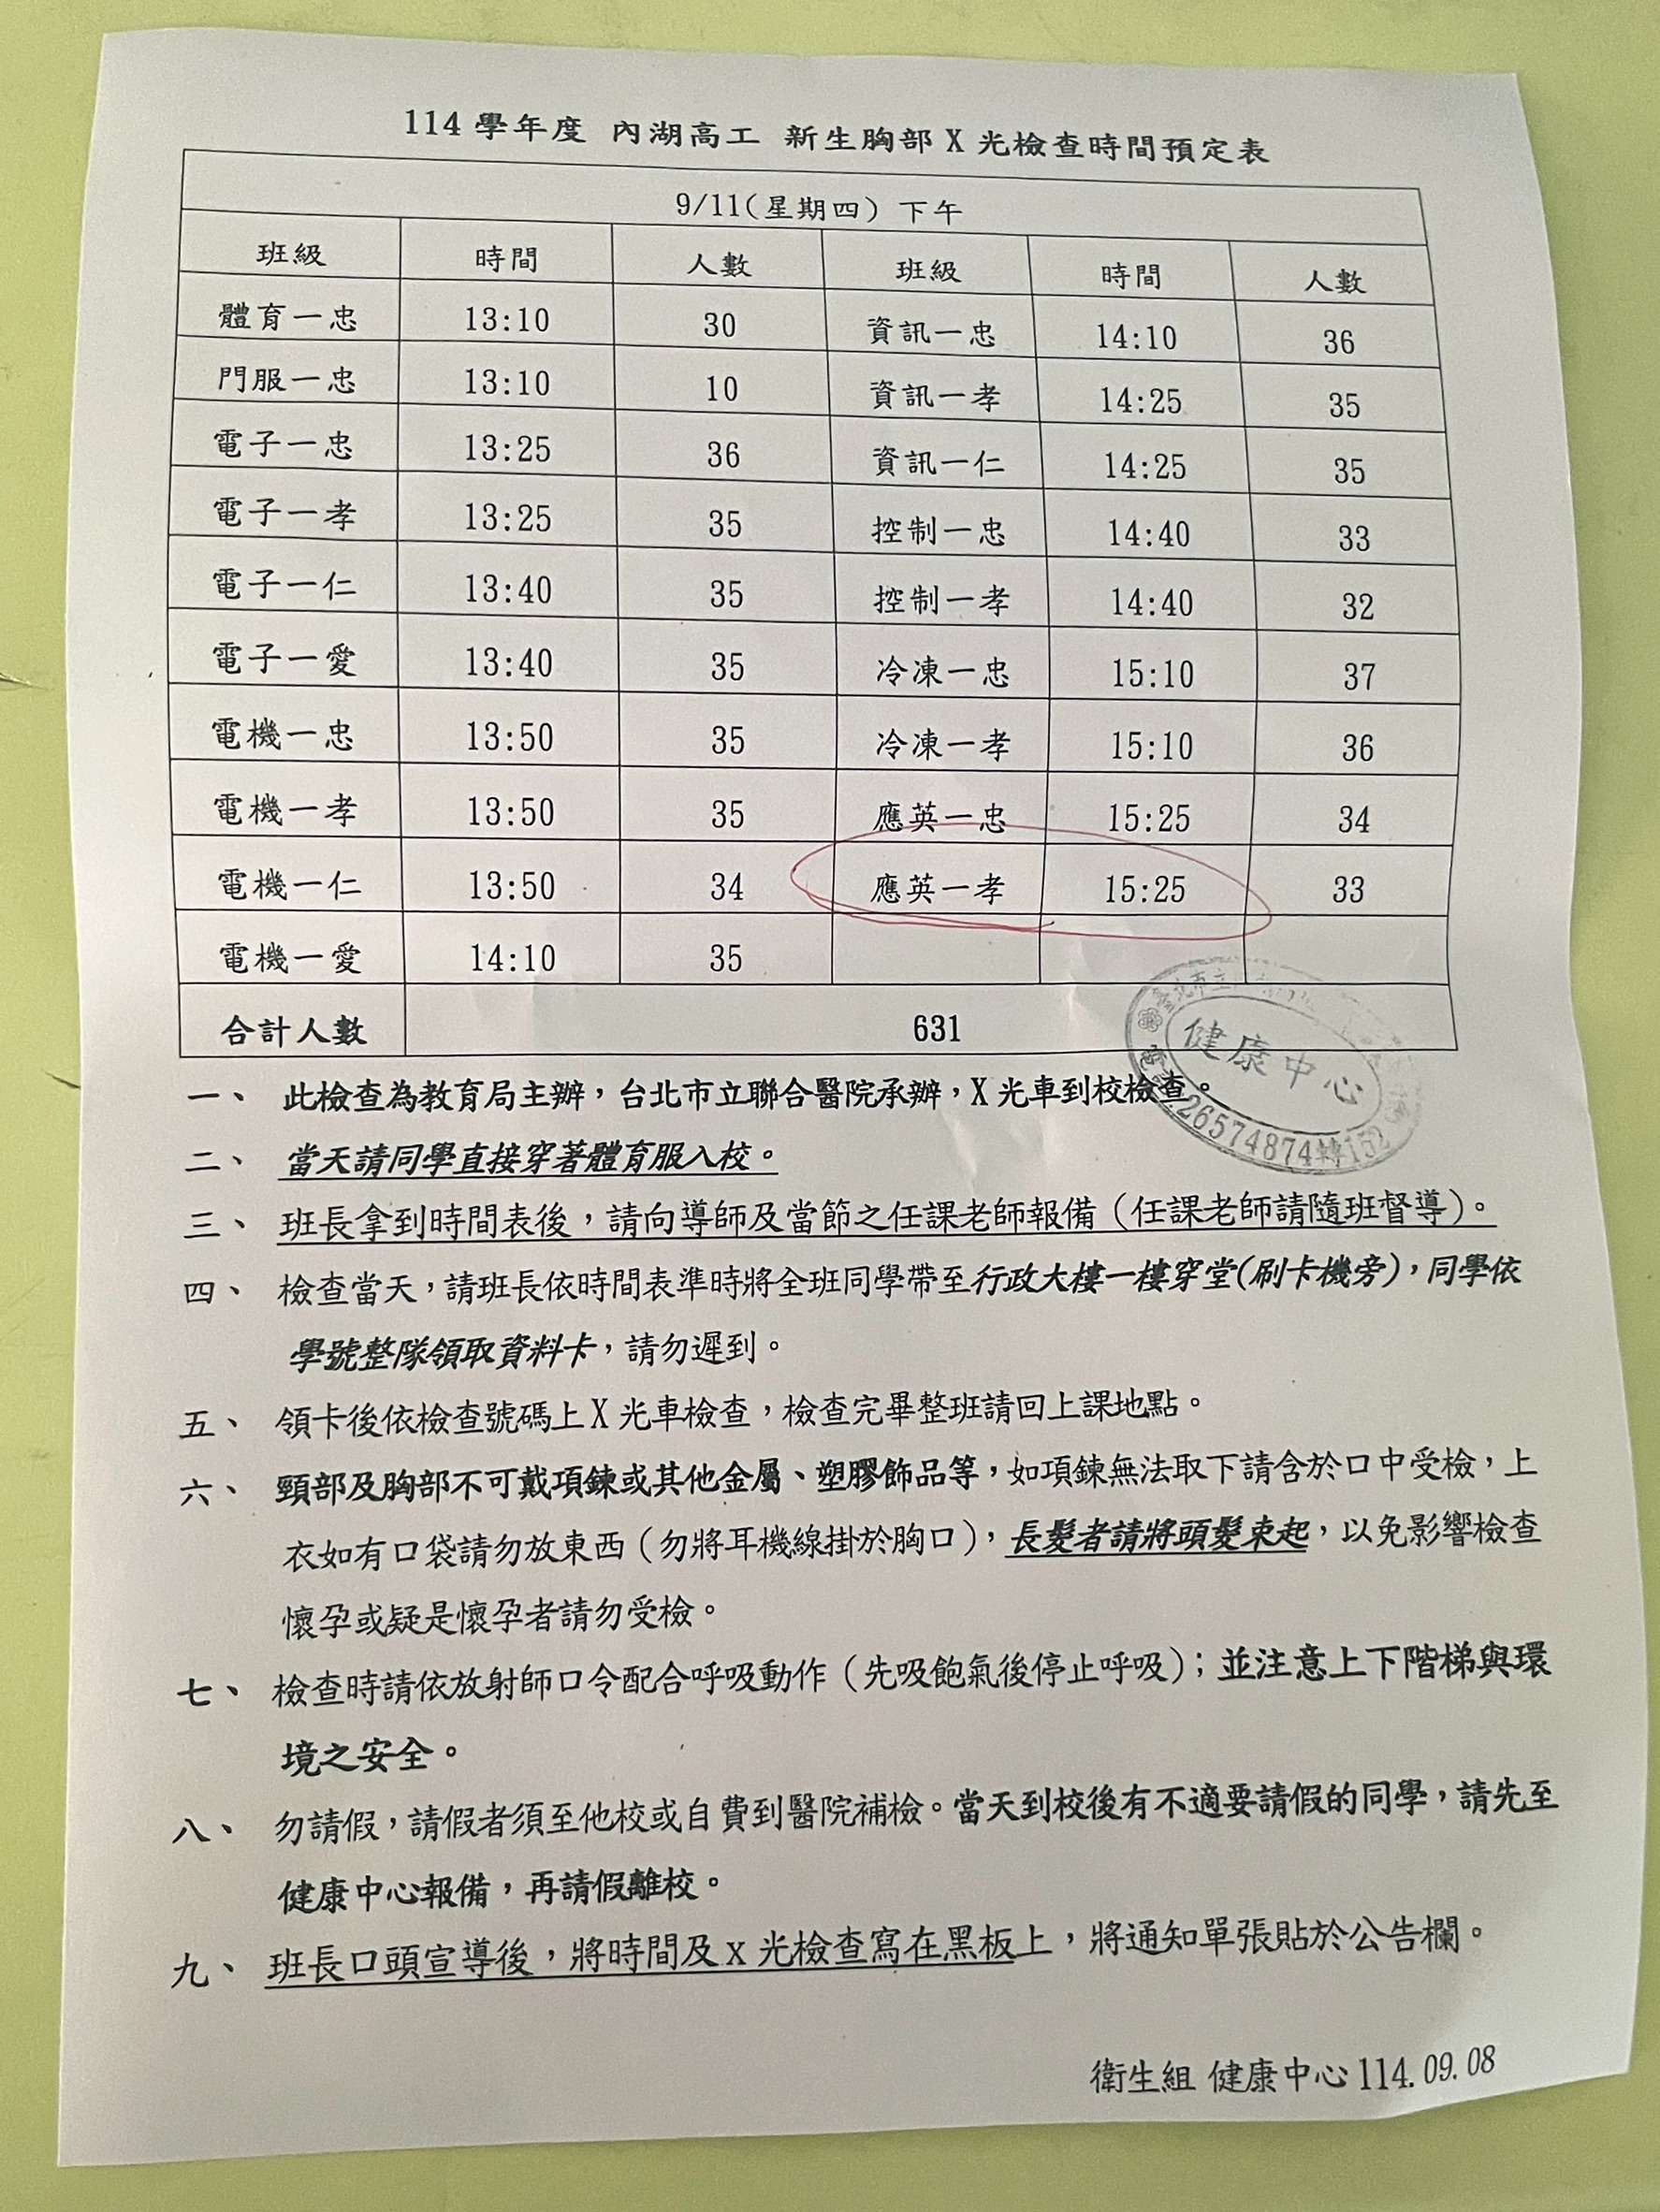 114 學年度 內湖高工 新生胸部 X 光檢查時間預定表
9/11(星期四) 下午
班級 時間 人數 班級 時間 人數
體育一忠 13:10 30 資訊一忠 14:10 36
門服一忠 13:10 10 資訊一孝 14:25 35
電子一忠 13:25 36 資訊一仁 14:25 35
電子一孝 13:25 35 控制一忠 14:40 33
電子一仁 13:40 35 控制一孝 14:40 32
電子一愛 13:40 35 冷凍一忠 15:10 37
電機一忠 13:50 35 冷凍一孝 15:10 36
電機一孝 13:50 35 應英一忠 15:25 34
電機一仁 13:50 34 應英一孝 15:25 33
電機一愛 14:10 35
合計人數 631
臺北市立
健康中心
26574874轉152
一、 此檢查為教育局主辦，台北市立聯合醫院承辦，X 光車到校檢查。
二、 當天請同學直接穿著體育服入校。
三、 班長拿到時間表後，請向導師及當節之任課老師報備（任課老師請隨班督導）。
四、 檢查當天，請班長依時間表準時將全班同學帶至行政大樓一樓穿堂(刷卡機旁)，同學依
學號整隊領取資料卡，請勿遲到。
五、 領卡後依檢查號碼上 X 光車檢查，檢查完畢整班請回上課地點。
六、 頸部及胸部不可戴項鍊或其他金屬、塑膠飾品等，如項鍊無法取下請含於口中受檢，上
衣如有口袋請勿放東西（勿將耳機線掛於胸口），長髮者請將頭髮束起，以免影響檢查
懷孕或疑是懷孕者請勿受檢。
七、 檢查時請依放射師口令配合呼吸動作（先吸飽氣後停止呼吸）；並注意上下階梯與環
境之安全。
八、 勿請假，請假者須至他校或自費到醫院補檢。當天到校後有不適要請假的同學，請先至
健康中心報備，再請假離校。
九、 班長口頭宣導後，將時間及 x 光檢查寫在黑板上，將通知單張貼於公告欄。
衛生組 健康中心 114.09.08